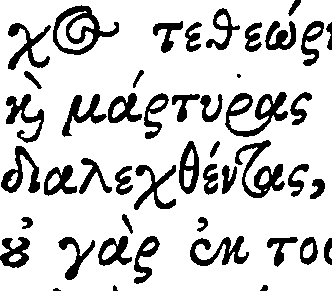 χος τεθεώρη
καὶ μάρτυρας
διαλεχθέντας,
οὐ γὰρ ἐκ του